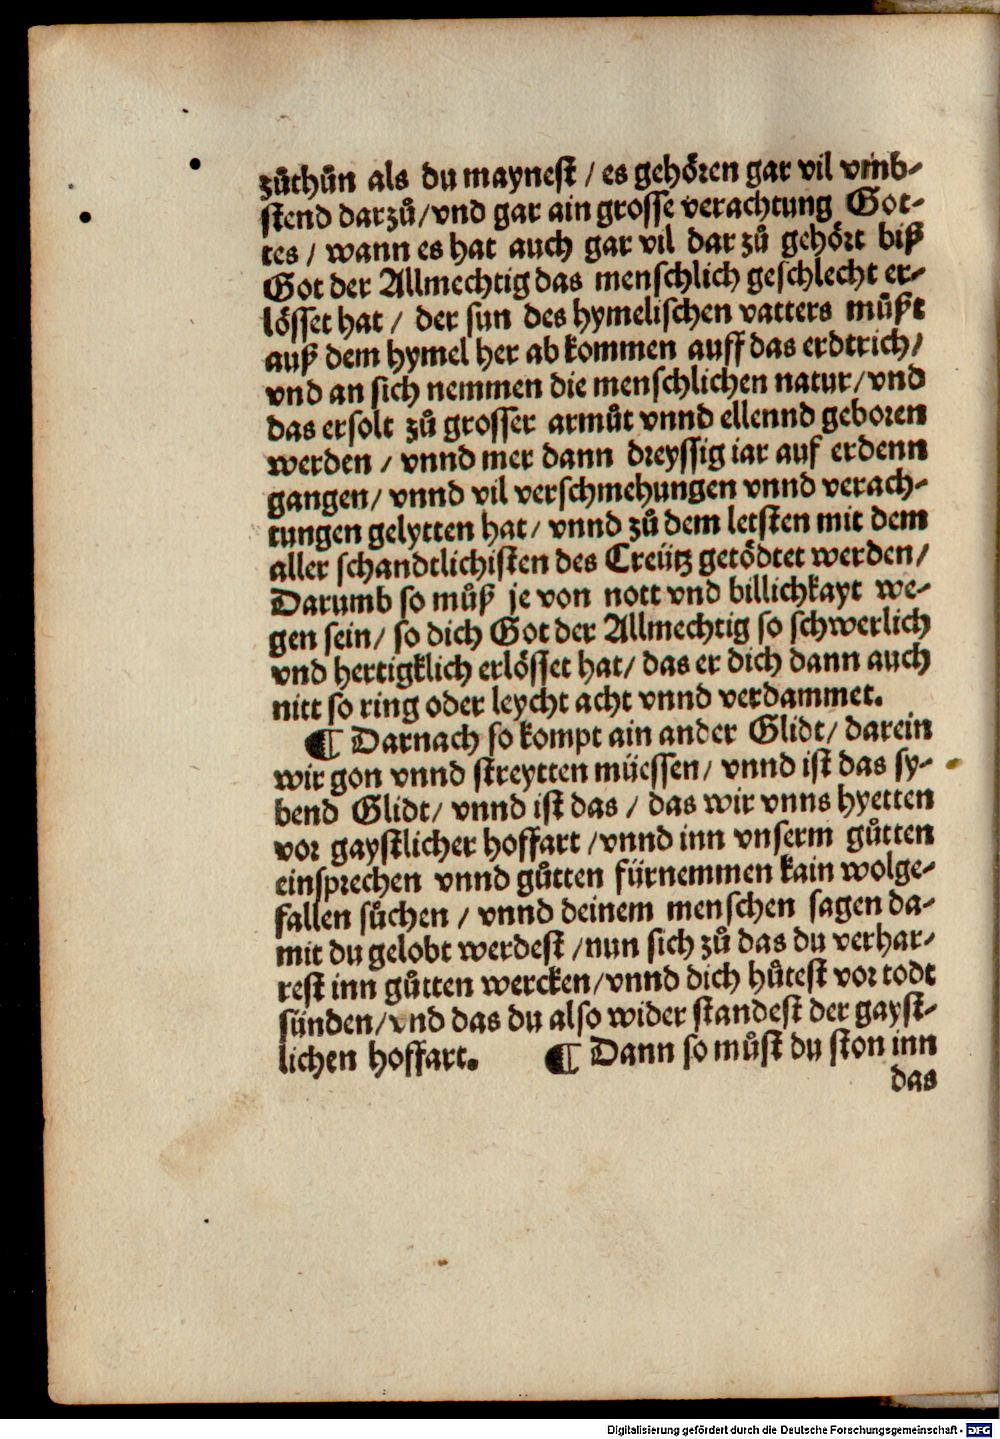 zůthůn als du maynest / es gehören gar vil vmb-
stend darzů/ vnd gar ain grosse verachtung Got-
tes / wann es hat auch gar vil dar zů gehört biß
Got der Allmechtig das menschlich geschlecht er-
lösset hat / der sun des hymelischen vatters můßt
auß dem hymel her ab kommen auff das erdtrich/
vnd an sich nemmen die menschlichen natur/ vnd
das er solt zů grosser armůt vnnd ellennd geboren
werden / vnnd mer dann dreyssig iar auf erdenn
gangen/ vnnd vil verschmehungen vnnd verach-
tungen gelytten hat/ vnnd zů dem letsten mit dem
aller schandtlichisten des Creütz getödtet werden/
Darumb so můß je von nott vnd billichkayt we-
gen sein/ so dich Got der Allmechtig so schwerlich
vnd hertigklich erlösset hat/ das er dich dann auch
nitt so ring oder leycht acht vnnd verdammet.
¶ Darnach so kompt ain ander Glidt/ darein
wir gon vnnd streytten müessen/ vnnd ist das sy-
bend Glidt/ vnnd ist das / das wir vnns hyetten
vor gaystlicher hoffart / vnnd inn vnserm gůtten
einsprechen vnnd gůtten fürnemmen kain wolge-
fallen sůchen / vnnd deinem menschen sagen da-
mit du gelobt werdest / nun sich zů das du verhar-
rest inn gůtten wercken/ vnnd dich hůtest vor todt
sünden/ vnd das du also wider standest der gayst-
lichen hoffart. ¶ Dann so můst du ston inn
das
Digitalisierung gefördert durch die Deutsche Forschungsgemeinschaft - DFG